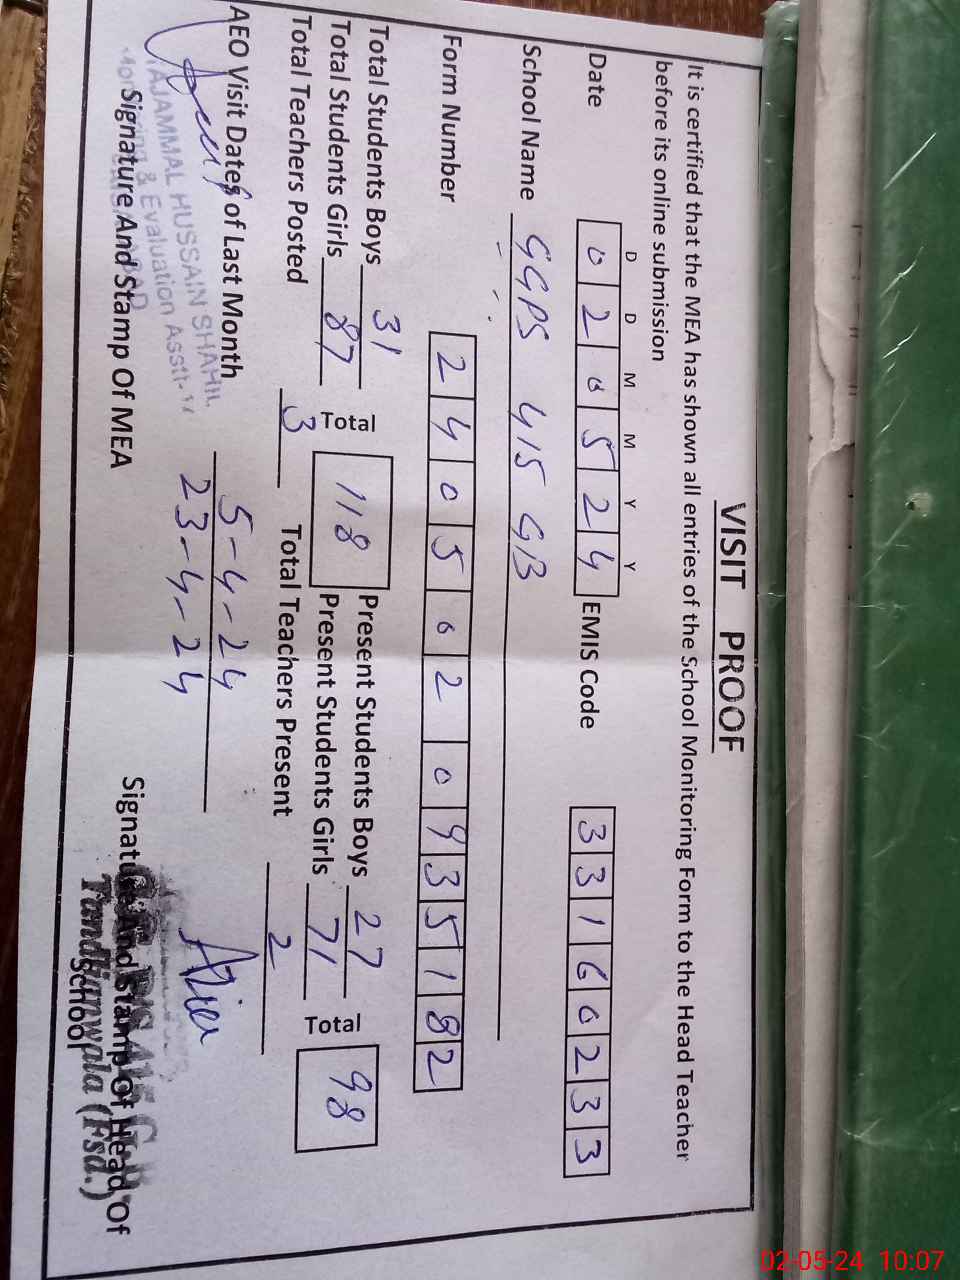 VISIT PROOF
It is certified that the MEA has shown all entries of the School Monitoring Form to the Head Teacher
before its online submission
D D M M Y Y
Date 0 2 0 5 2 4 EMIS Code 3 3 1 6 0 2 3 3
School Name GGPS 415 GB
Form Number 2 4 0 5 0 2 0 9 3 5 1 8 2
Total Students Boys 31 Total 118 Present Students Boys 27 Total 98
Total Students Girls 87 Present Students Girls 71
Total Teachers Posted 3 Total Teachers Present 2
AEO Visit Dates of Last Month 5-4-24
23-4-24
TAJAMMAL HUSSAIN SHAHI
Monitoring & Evaluation Asstt
Signature And Stamp Of MEA
Signature And Stamp Of Head Of
School
Tandlianwala (Fsd.)
02-05-24 10:07